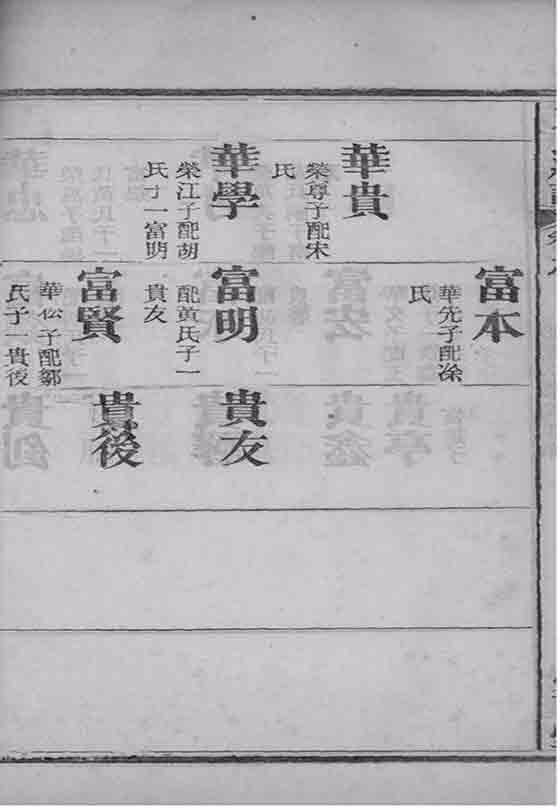 富本
華先子配凃
氏
華貴
榮尊子配宋
氏
華學
榮江子配胡
氏子一富明
富明
配黄氏子一
貴友
貴友
富賢
華松子配鄒
氏子一貴後
貴後